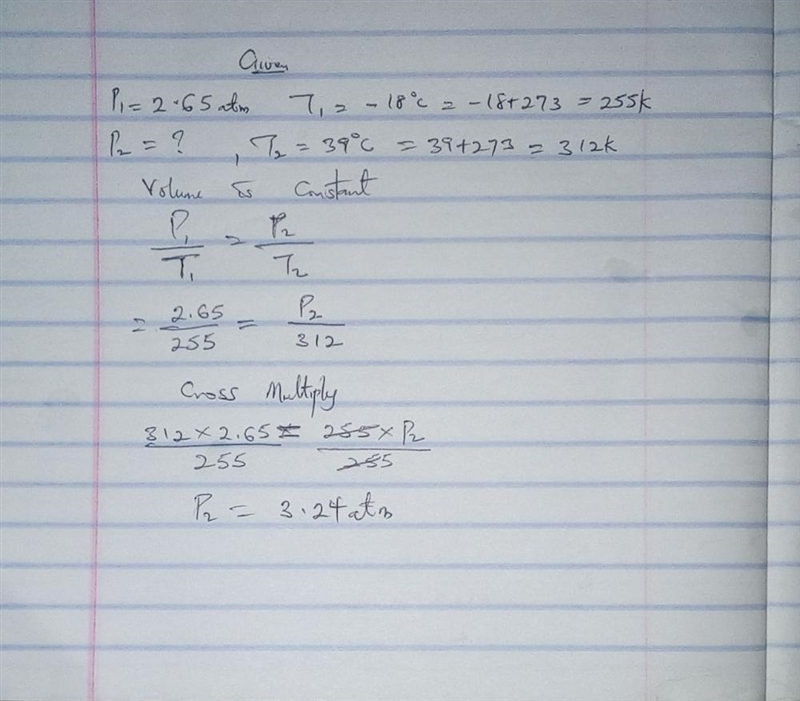 Given
P₁ = 2.65 atm T₁ = -18°c = -18+273 = 255k
P₂ = ? , T₂ = 39°c = 39+273 = 312k
Volume is Constant
P₁/T₁ = P₂/T₂
= 2.65/255 = P₂/312
Cross Multiply
312 × 2.65/255 = 255 × P₂/255
P₂ = 3.24 atm